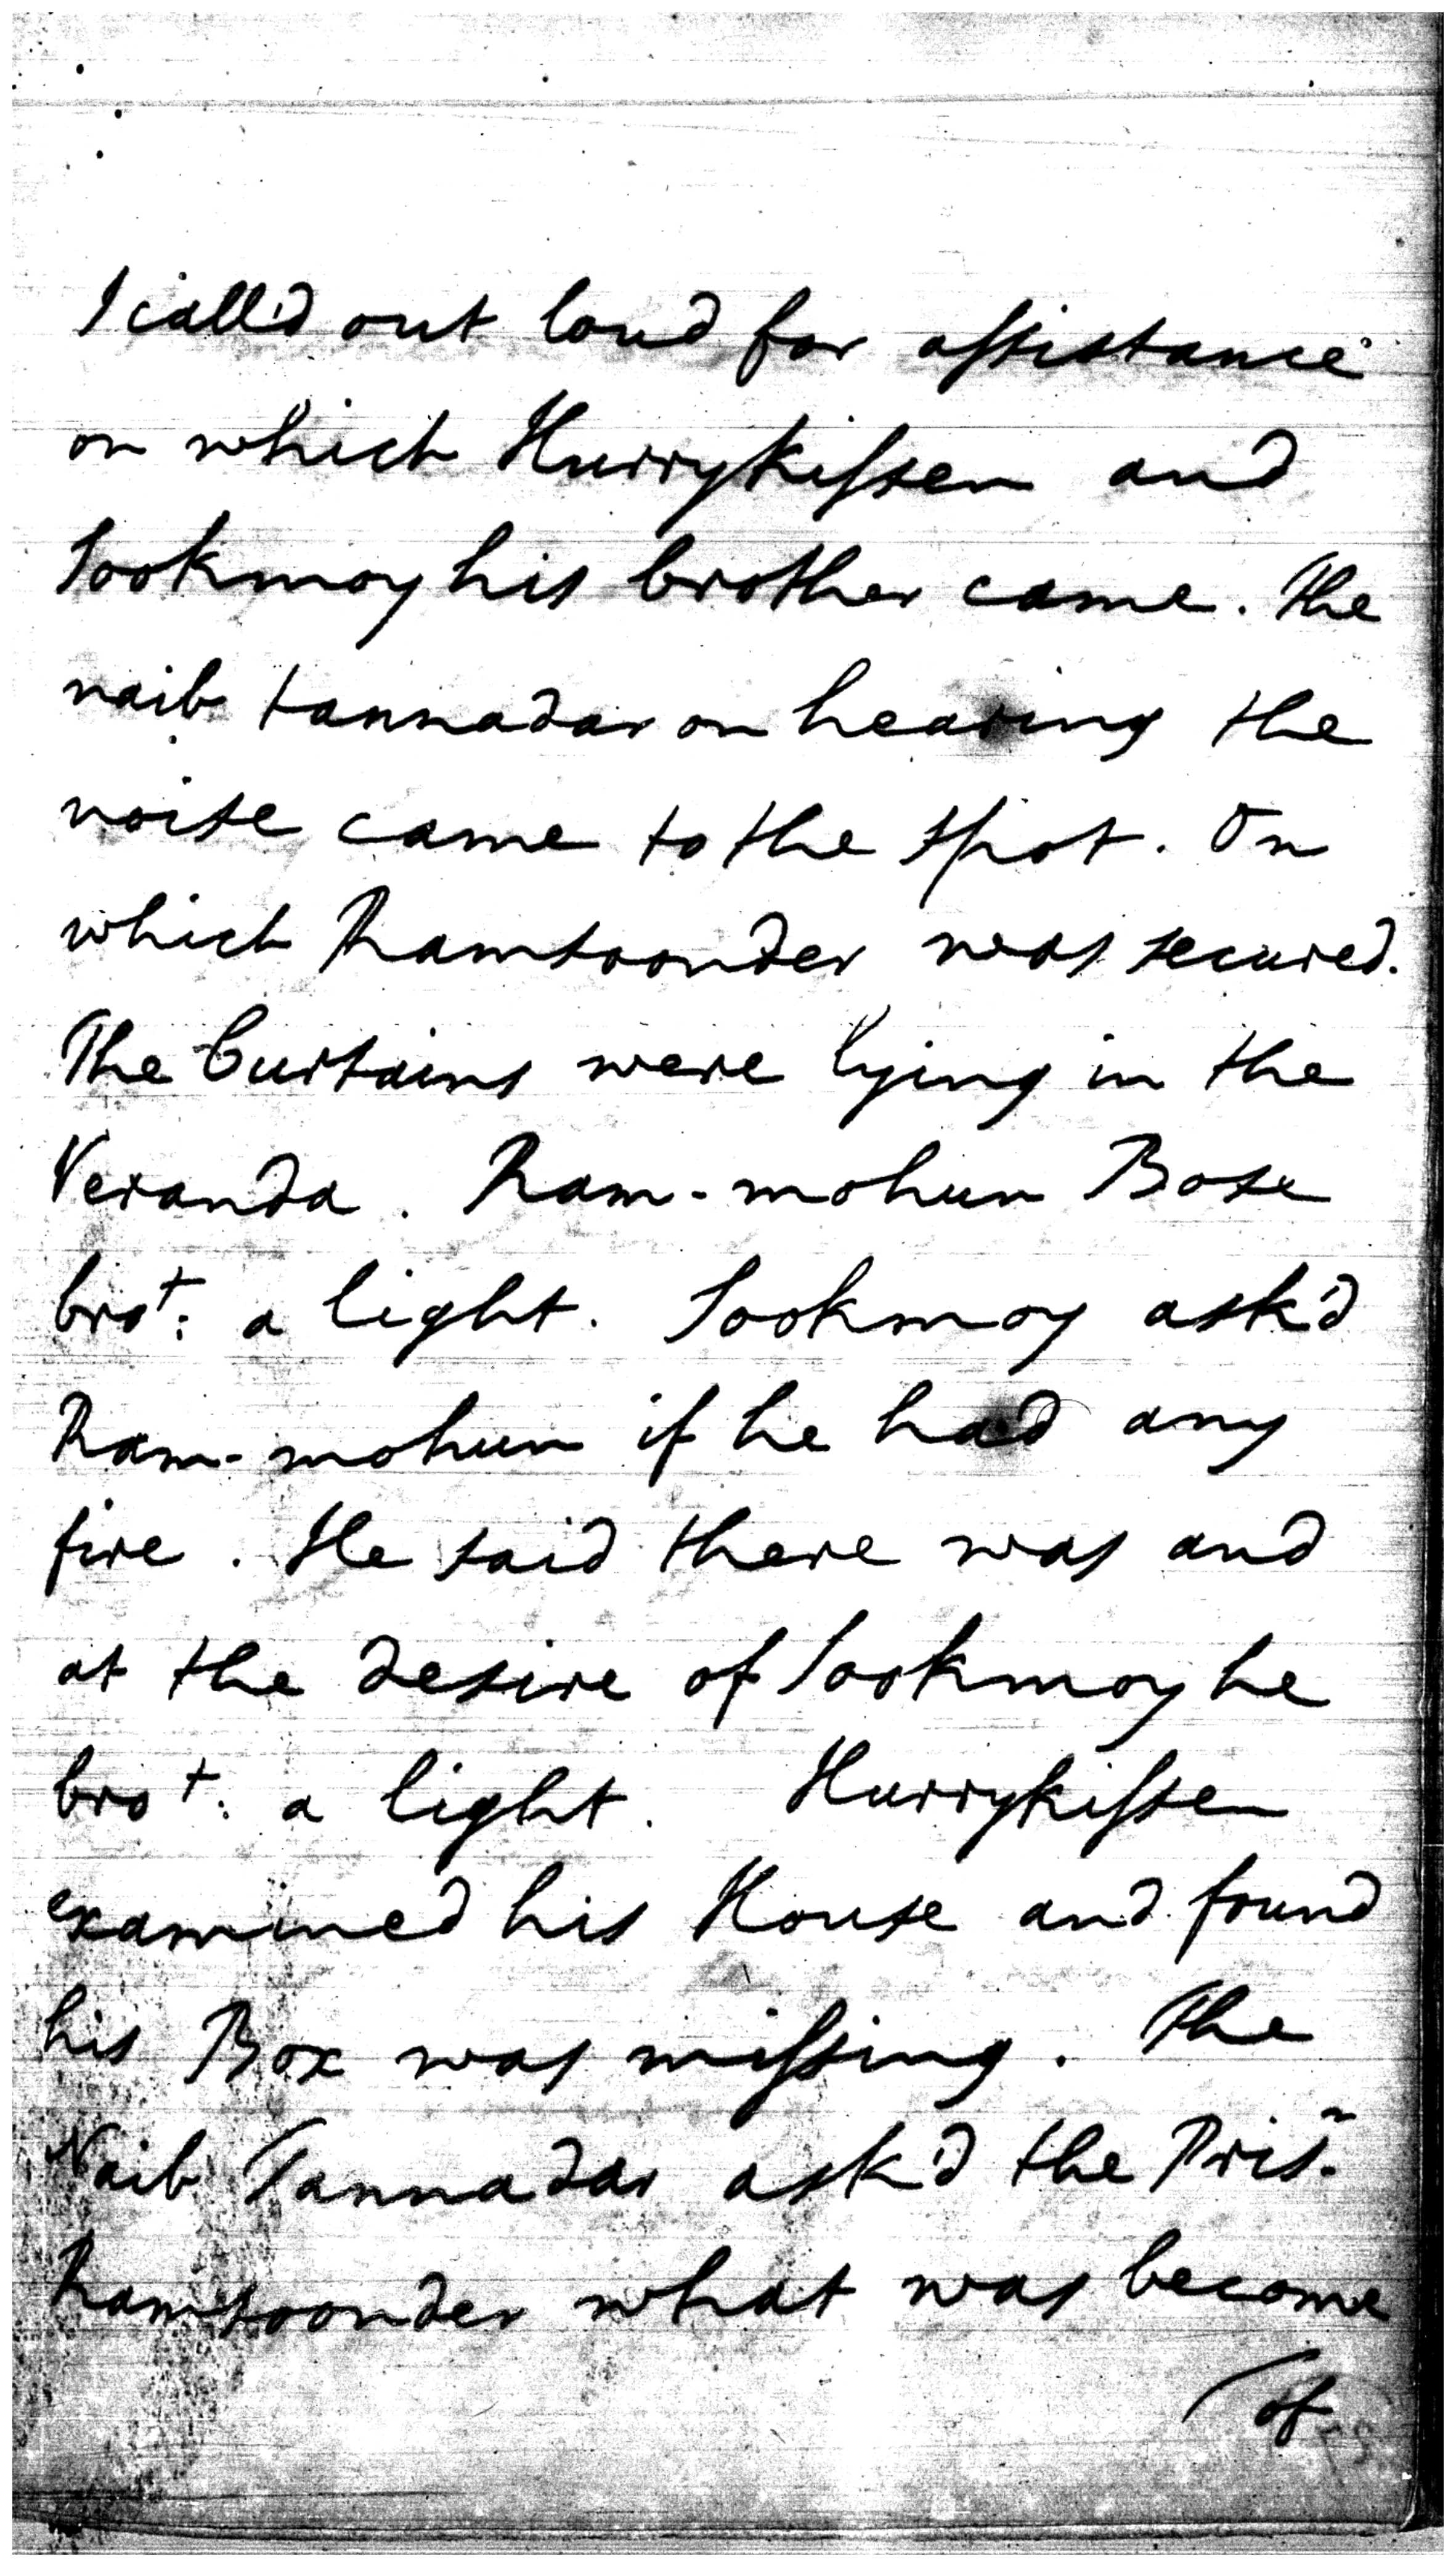 I call'd out loud for assistance
on which Hurrykissen and
Sookmoy his brother came. The
naib tannadar on hearing the
noise came to the spot. On
which Ramsoonder was secured.
The Curtains were lying in the
Veranda. Ram-mohun Bose
bro^t: a light. Sookmoy ask'd
Ram-mohun if he had any
fire. He said there was and
at the desire of Sookmoy he
bro^t: a light. Hurrykissen
examined his House and found
his Box was missing. The
Naib Tannadar ask'd the Pris^r.
Ramsoonder what was become
of